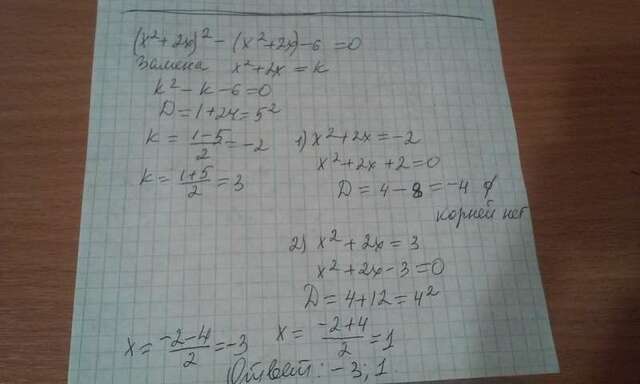 (x²+2x)² - (x²+2x) - 6 = 0
Замена x²+2x = k
k² - k - 6 = 0
D = 1+24 = 5²
k = (1-5)/2 = -2
k = (1+5)/2 = 3
1) x²+2x = -2
x²+2x+2 = 0
D = 4-8 = -4 ∅
корней нет
2) x²+2x = 3
x²+2x-3 = 0
D = 4+12 = 4²
x = (-2-4)/2 = -3
x = (-2+4)/2 = 1
Ответ: -3; 1.